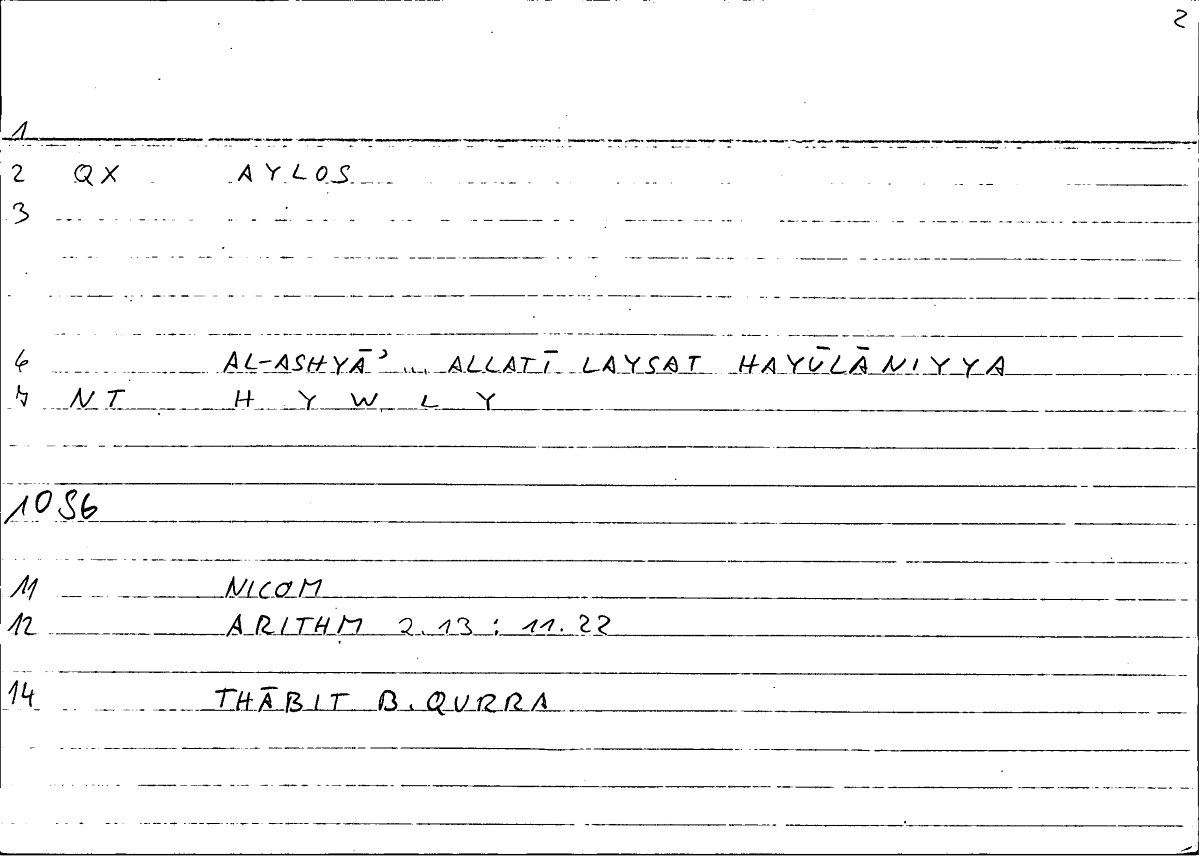 2
1
2 QX AYLOS
3
6 AL-ASHYĀʾ ... ALLATĪ LAYSAT HAYŪLĀNIYYA
7 NT H Y W L Y
10 S6
11 NICOM
12 ARITHM 2.13 : 11.22
14 THĀBIT B. QURRA